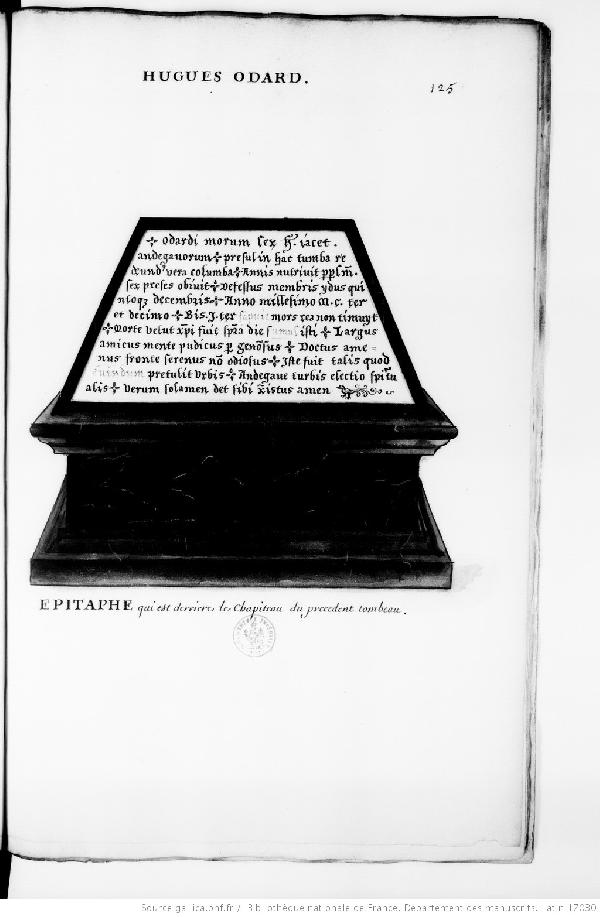 HUGUES ODARD.
125
✢ Odardi morum lex H. iacet.
andegavorum ✢ presul in hac tumba re
vera columba ✢ Annis nutriuit
sex preses obiuit ✢ Defessus membris ydus qui
decembris ✢ Anno millesimo m. c. ter
et decimo ✢ Bis. J. ter mors rea non timuyt
✢ Morte velut xpi fuit die isti ✢ Largus
amicus mente pudicus ꝑ genosus ✢ Doctus ame=
nus fronte serenus nō odiosus ✢ Iste fuit talis quod
pretulit Urbis ✢ Andegave turbis electio spitu
alis ✢ Verum solamen det sibi xistus amen
EPITAPHE qui est derriere le Chapiteau du precedent tombeau.
Source gallica.bnf.fr / Bibliothèque nationale de France. Département des manuscrits. Latin 17030